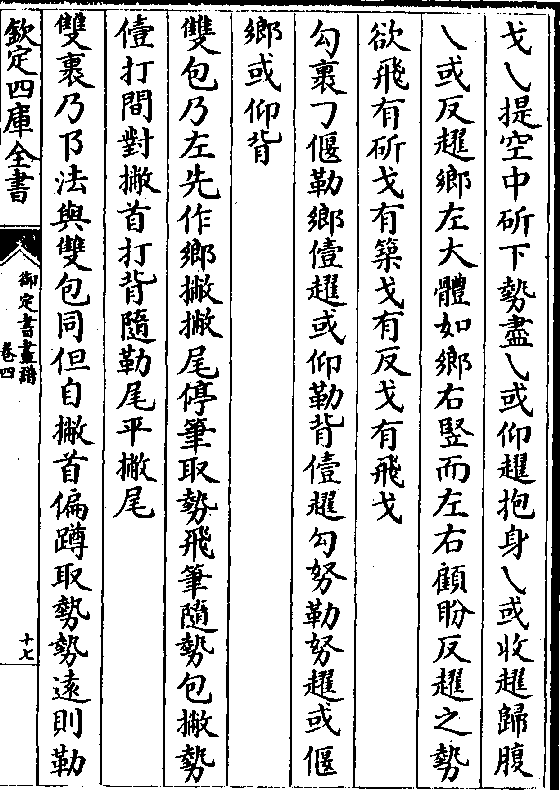 戈乀提空中斫下勢盡乀或仰趯抱身乀或收趯歸腹
乀或反趯鄉左大體如鄉右竪而左右顧盼反趯之勢
欲飛有斫戈有築戈有反戈有飛戈
勾裹㇆偃勒鄉僼趯或仰勒背僼趯勾努勒努趯或偃
鄉或仰背
雙包乃左先作鄉撇撇尾停筆取勢飛筆隨勢包撇勢
僼打間對撇首打背隨勒尾平撇尾
雙裹乃㇌法與雙包同但自撇首偏蹲取勢勢遠則勒
欽定四庫全書
御定書畫譜
卷四
十七